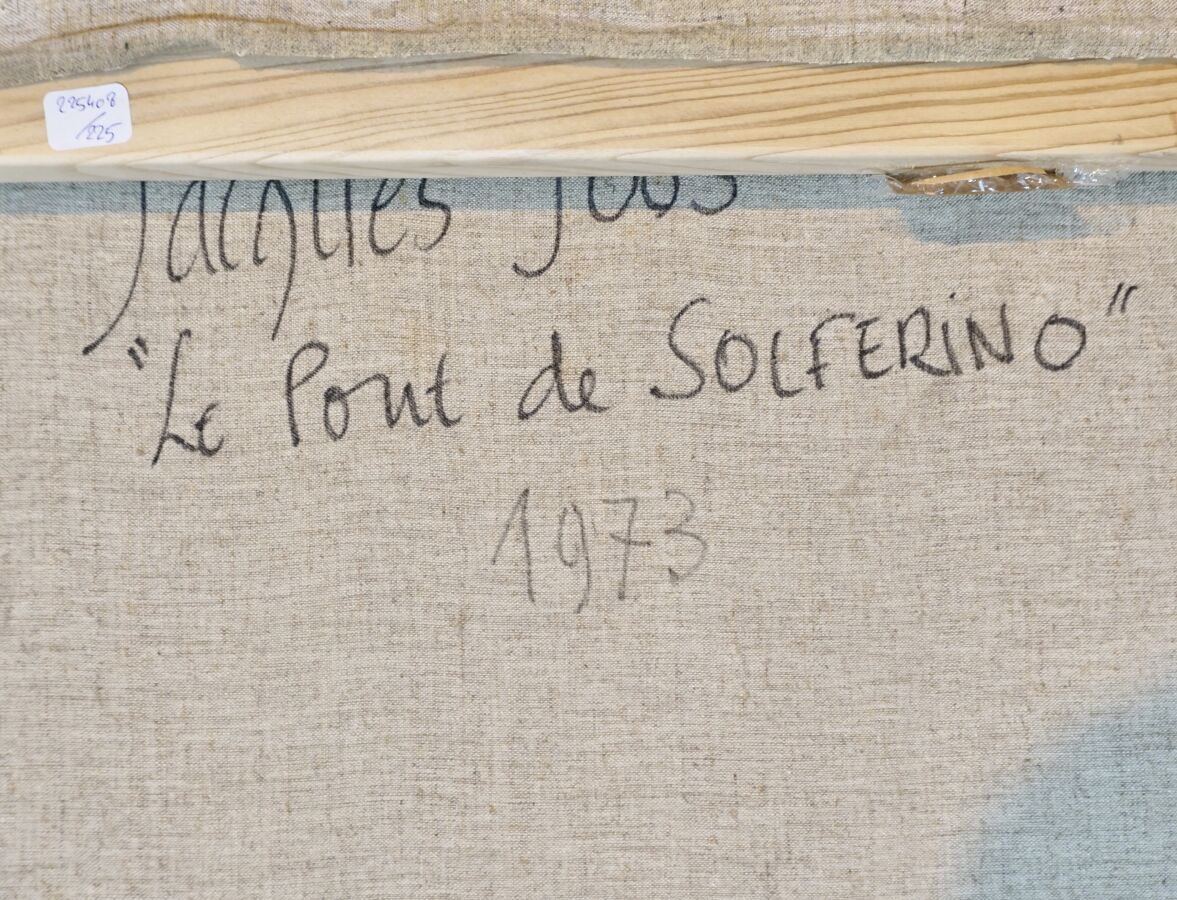 225408
/225
Jacques
"Le Pont de SOLFERiNO"
1973